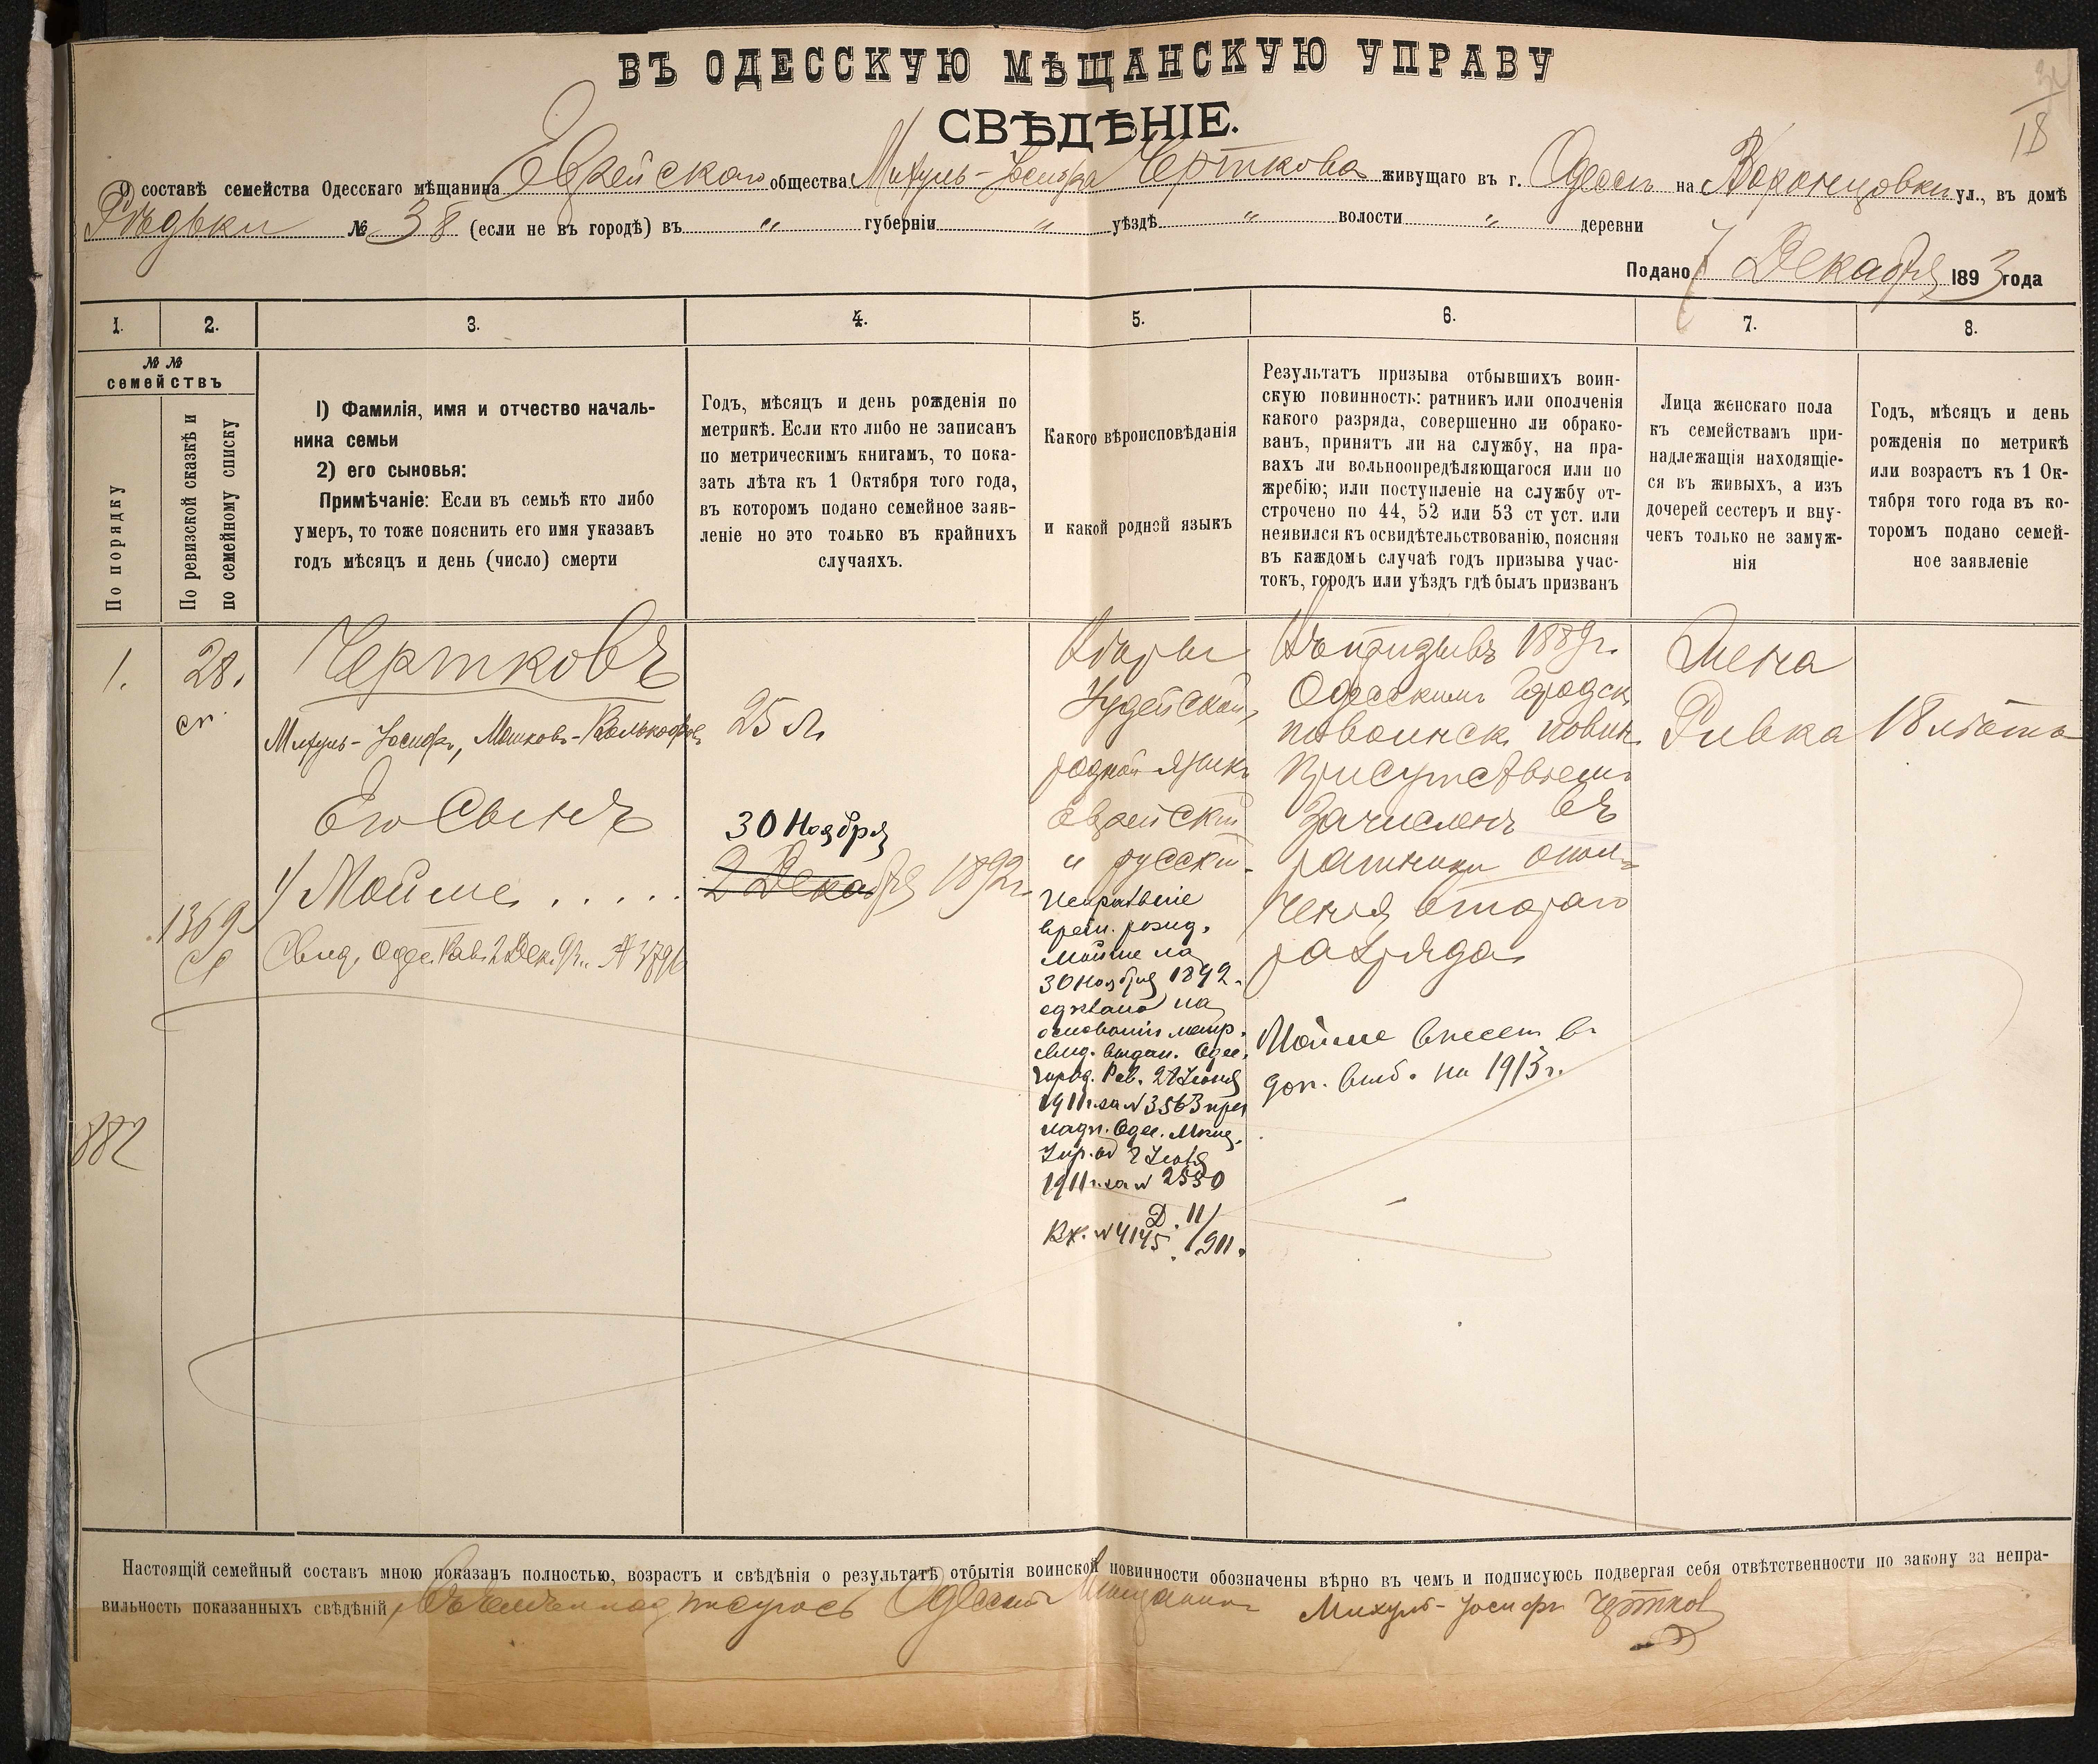 ВЪ ОДЕССКУЮ МѢЩАНСКУЮ УПРАВУ
СВѢДѢНІЕ.
18
О составѣ семейства Одесскаго мѣщанина Еврейскаго общества Михуль-Іосифа Черткова живущаго въ г. Одессѣ на Воронцовкѣ ул., въ домѣ
Рѣдьки № 38 (если не въ городѣ) въ " губерніи " уѣздѣ " волости " деревни
Подано 7 Декабря 1893 года
1. 2. 3. 4. 5. 6. 7. 8.
№ №
семействъ
По порядку
По ревизской сказкѣ и
по семейному списку
1) Фамилія, имя и отчество началь-
ника семьи
2) его сыновья:
Примѣчаніе: Если въ семьѣ кто либо
умеръ, то тоже пояснить его имя указавъ
годъ мѣсяцъ и день (число) смерти
Годъ, мѣсяцъ и день рожденія по
метрикѣ. Если кто либо не записанъ
по метрическимъ книгамъ, то пока-
зать лѣта къ 1 Октября того года,
въ которомъ подано семейное заяв-
леніе но это только въ крайнихъ
случаяхъ.
Какого вѣроисповѣданія
и какой родной языкъ
Результатъ призыва отбывшихъ воин-
скую повинность: ратникъ или ополченія
какого разряда, совершенно ли обрако-
ванъ, принятъ ли на службу, на пра-
вахъ ли вольноопредѣляющагося или по
жребію; или поступленіе на службу от-
строчено по 44, 52 или 53 ст уст. или
неявился къ освидѣтельствованію, поясняя
въ каждомъ случаѣ годъ призыва учас-
токъ, городъ или уѣздъ гдѣ былъ призванъ
Лица женскаго пола
къ семействамъ при-
надлежащія находящіе-
ся въ живыхъ, а изъ
дочерей сестеръ и вну-
чекъ только не замуж-
нія
Годъ, мѣсяцъ и день
рожденія по метрикѣ
или возрастъ къ 1 Ок-
тября того года въ ко-
торомъ подано семей-
ное заявленіе
1.
28.
сп.
1369
882
Чертковъ
Михуль-Іосифъ, Мошковъ-
Его Сынъ
1/ Мойше . . . . .
Свид. Одес. Рав. 2 Дек. 92г. № 3796
25 л.
30 Ноября
2 Декабря 1892г.
Вѣры
Іудейской,
родной языкъ
еврейскій
и русскій.
Исправленіе
врем. рожд.
Мойше на
30 Ноября 1892.
сдѣлано на
основаніи метр.
свид. выдан. Одес.
Город. Рав.
1911г. за № 3563 при
надп. Одес. Мѣщ.
Упр. от 2
1911г. за № 2550
Д. 11/
Вх. № 4145 /911.
Въ призывѣ 1889г.
Одесскимъ Городск.
по воинск. повин.
Присутствіемъ
Зачисленъ въ
ратники опол-
ченія втораго
разряда
Мойше внесен в
доп. вып. на 1913г.
Жена
Ривка
18 лѣтъ
Настоящій семейный составъ мною показанъ полностью, возрастъ и свѣдѣнія о результатѣ отбытія воинской повинности обозначены вѣрно въ чемъ и подписуюсь подвергая себя отвѣтственности по закону за непра-
вильность показанныхъ свѣдѣній Одесскій Мѣщанинъ Михуль-Іосифъ Чертков